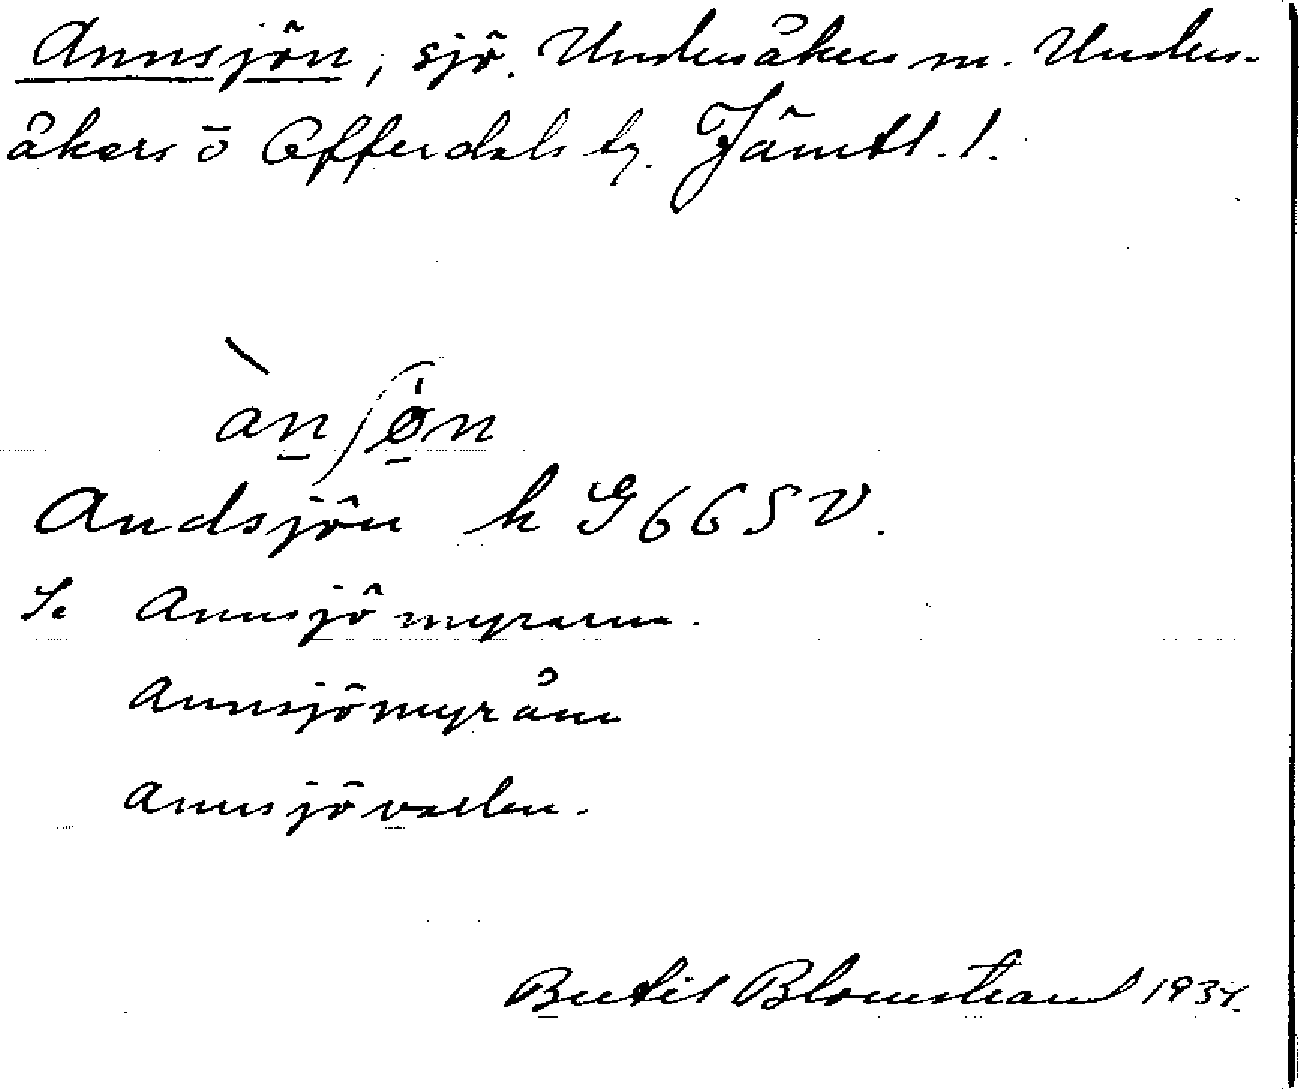 Annsjön, sjö. Undersåkers sn. Under-
åkers o Offerdals tg. Jämtl. l.
àn̲ʃø̲n
Andsjön k G 66 SV.
Se Annsjömyrarna.
Annsjömyråna
Annsjövallen.
Bertil Blomstrand 1934.